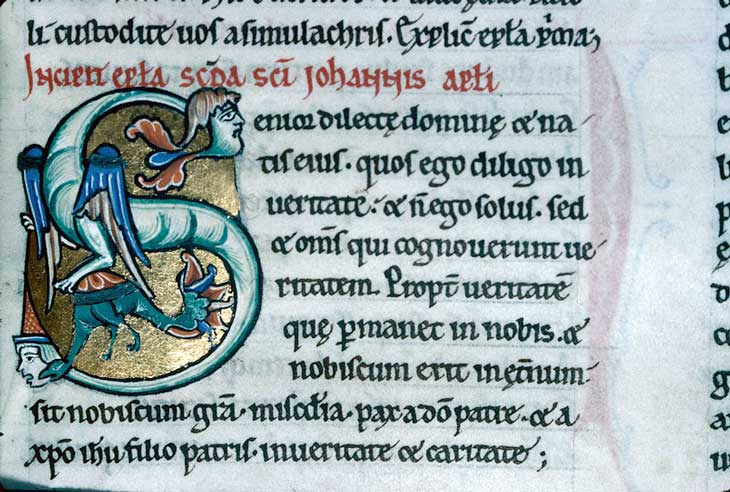 li custodite uos asimulachris. Explic̄ epl̄a p̄ma;
Incipit epl̄a sc̄da sc̄i iohannis apl̄i
Senior dilectę dominę & na-
tis eius. quos ego diligo in
ueritate. & n̄ ego solus. sed
& om̄s qui cognouerunt ue-
ritatem. Propt̄ ueritatē
quę ꝑmanet in nobis. &
nobiscum erit in ęt̄num-
sit nobiscum grā. misc̄dia. pax a dō patre. & a
xp̄o ih̄u filio patris. in ueritate & caritate;